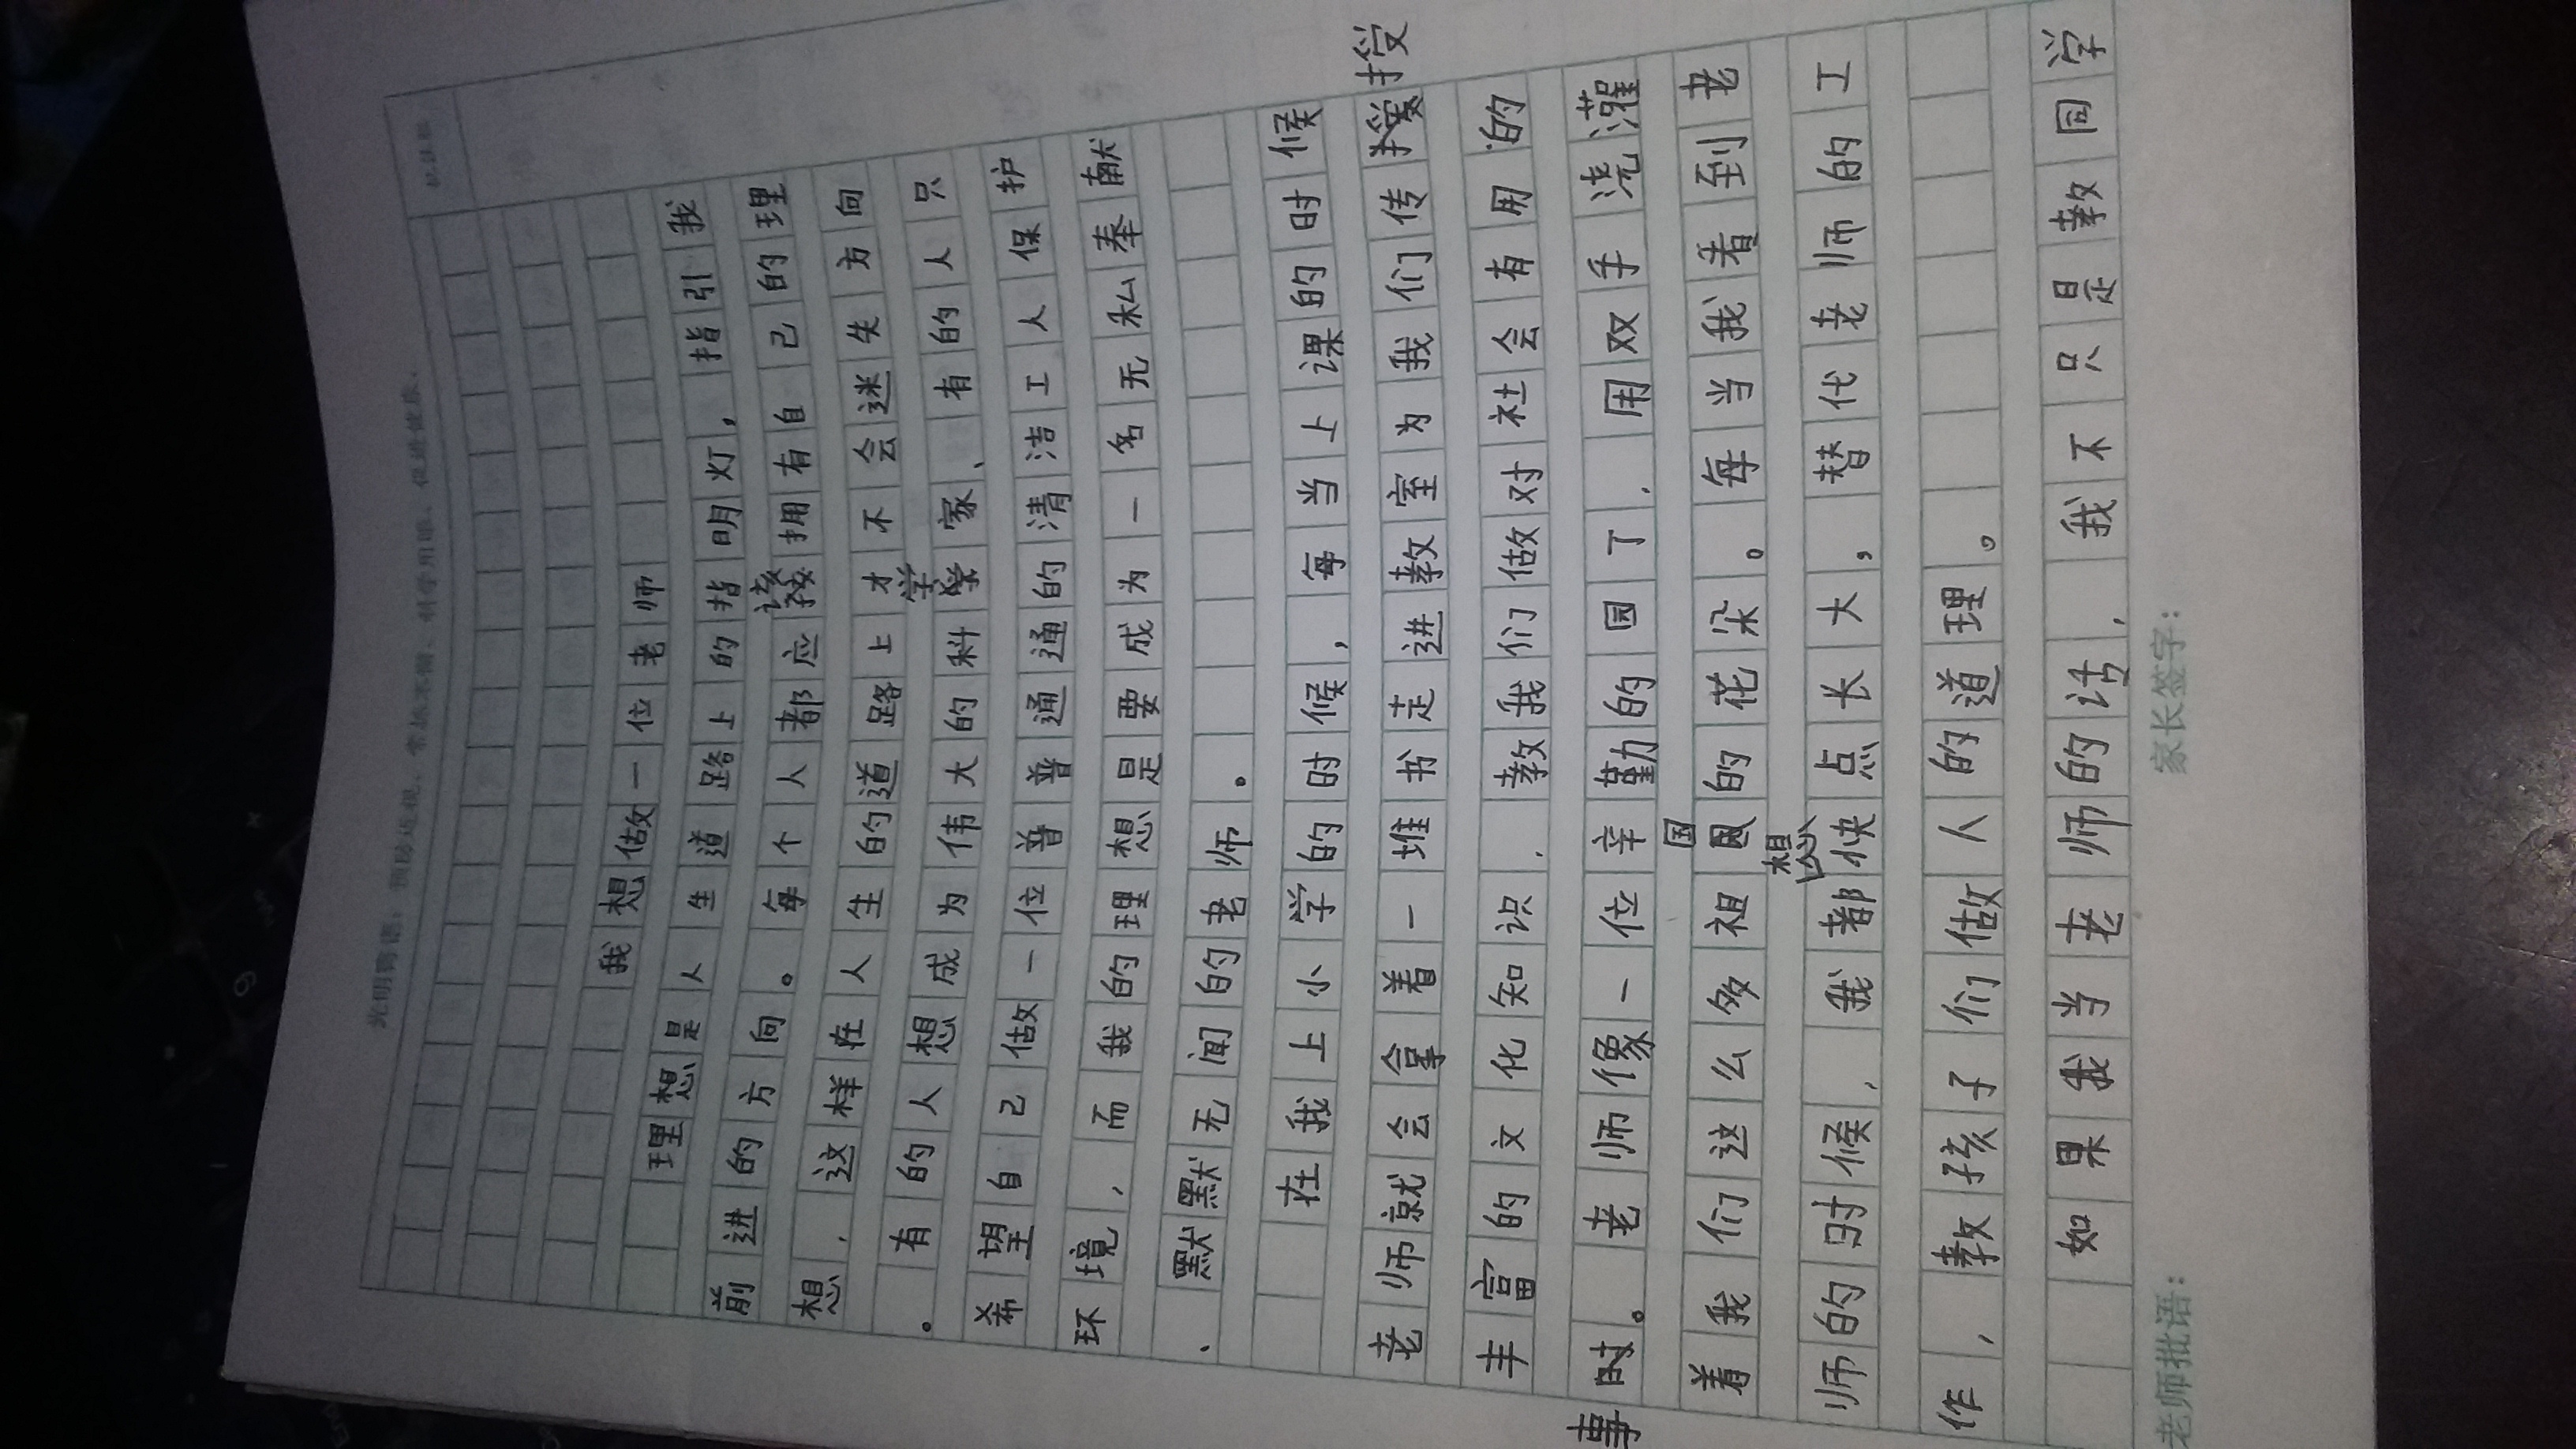 光明寄语：预防近视、常抓不懈、科学用眼、促进健康。
我想做一位老师
理想是人生道路上的指明灯，指引我
前进的方向。每个人都应该拥有自己的理
想，这样在人生的道路上才不会迷失方向
。有的人想成为伟大的科学家、有的人只
希望自己做一位普普通通的清洁工人保护
环境，而我的理想是要成为一名无私奉献
、默默无闻的老师。
在我上小学的时候，每当上课的时候
老师就会拿着一堆书走进教室为我们传授
丰富的文化知识，教我们做对社会有用的
事。老师像一位辛勤的园了，用双手浇灌
着我们这么多祖国的花朵。每当我看到老
师的时候，我都想快点长大，替代老师的工
作，教孩子们做人的道理。
如果我当老师的话，我不只是教同学
老师批语： 家长签字：